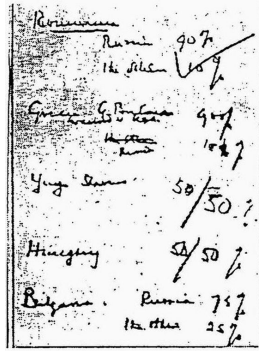 Roumania
Russia 90%
The others 10%
Greece G. Britain 90%
(in accord with USA)
Russia 10%
Yugoslavia 50/50%
Hungary 50/50%
Bulgaria. Russia 75%
The others 25%